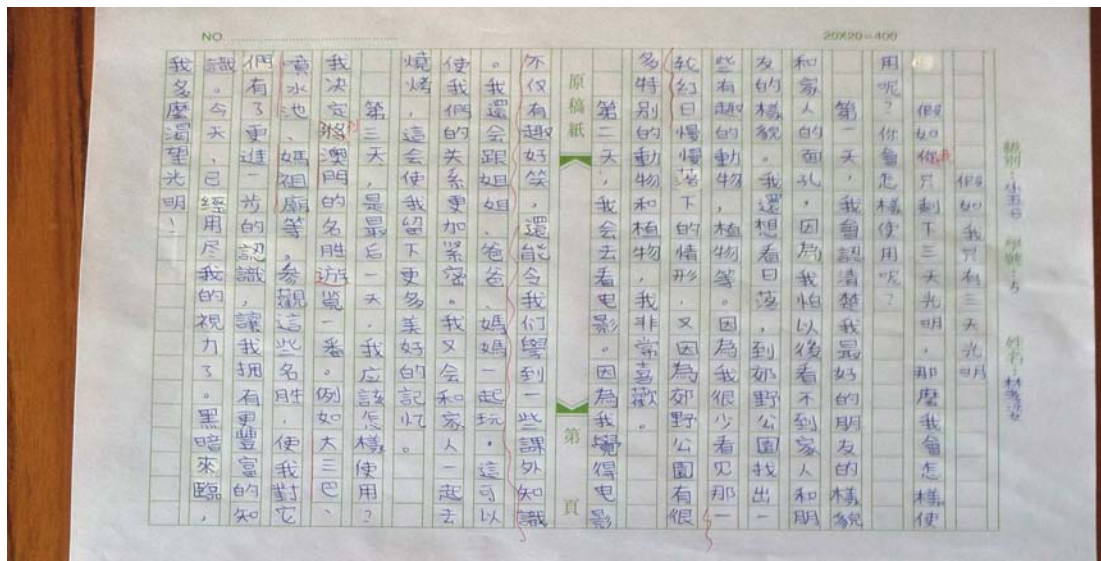 NO.
20X20=400
級別：小五日 學號：5 姓名：林
假如我只有三天光明
假如你只剩下三天光明，那麼我會怎樣使
用呢？你會怎樣使用呢？
第一天，我會認清楚我最好的朋友的樣貌
和家人的面孔，因為我怕以後看不到家人和朋
友的樣貌。我還想看日落，到郊野公園找出一
些有趣的動物，植物等。因為我很少看見那一
輪紅日慢慢落下的情形，又因為郊野公園有很
多特別的動物和植物，我非常喜歡。
第二天，我会去看电影。因為我覺得电影
原稿紙 第 頁
不仅有趣好笑，還能令我们學到一些課外知識
。我還会跟姐姐、爸爸、媽媽一起玩。這可以
使我們的关系更加紧密。我又会和家人一起去
燒烤，這会使我留下更多美好的記忆。
第三天，是最后一天，我应該怎樣使用？
我决定將澳門的名胜遊览一番。例如大三巴、
噴水池、媽祖廟等。參觀這些名胜，使我對它
們有了更進一步的認識，讓我拥有更豐富的知
識。今天，已經用尽我的視力了。黑暗來臨，
我多麼渴望光明！